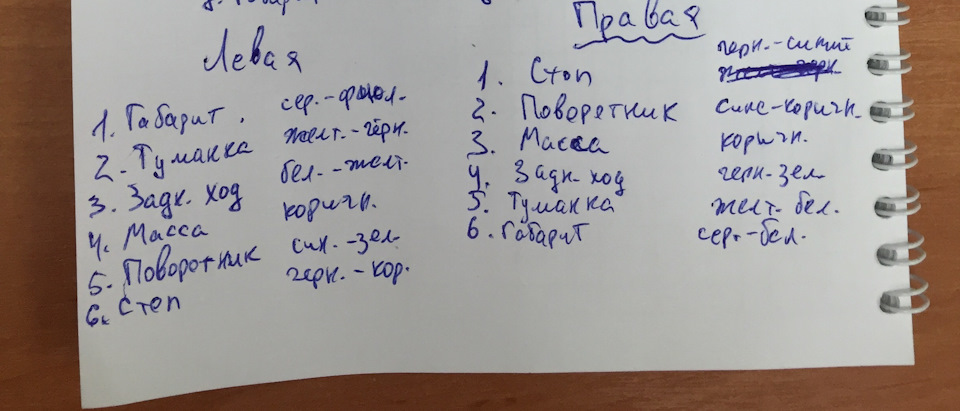 Правая
Левая
1. Габарит. сер.-фиол.
2. Туманка желт.-черн.
3. Задн. ход бел.-желт.
4. Масса коричн.
5. Поворотник син.-зел.
6. Стоп черн.-кор.
1. Стоп черн.-синий
2. Поворотник сине-коричн.
3. Масса коричн.
4. Задн. ход черн-зел.
5. Туманка желт.бел.
6. Габарит сер.-бел.